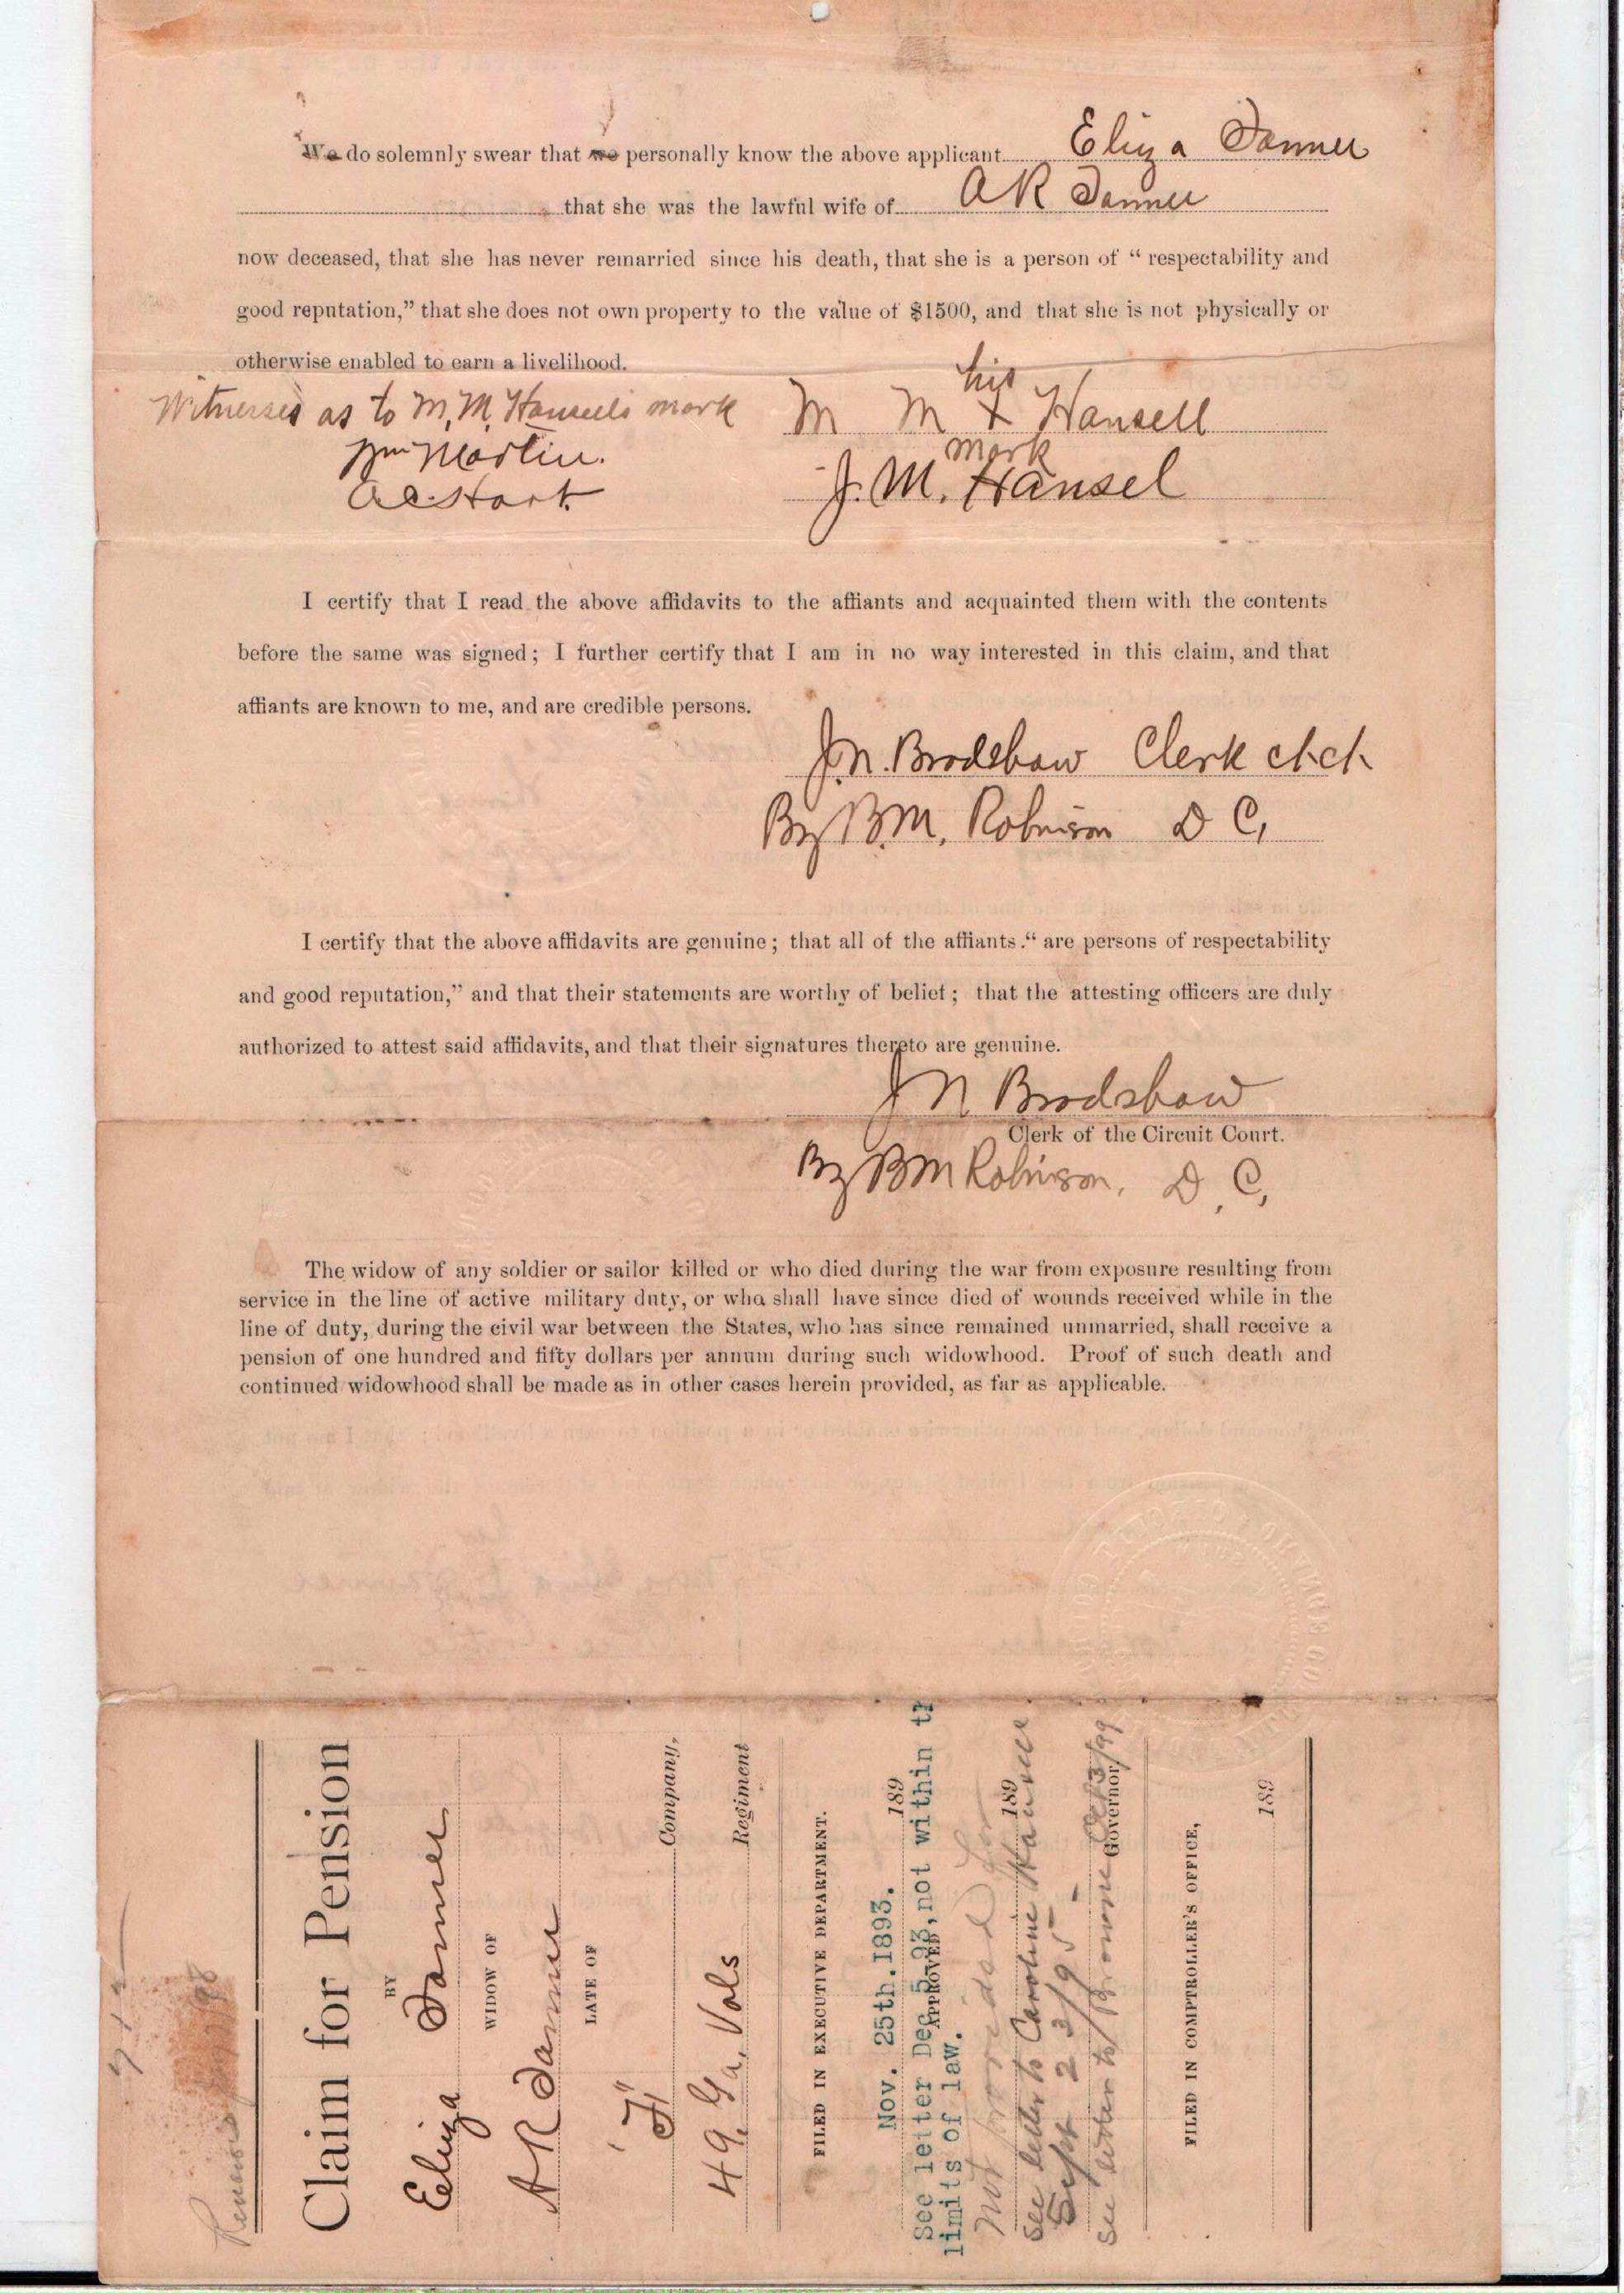 We do solemnly swear that we personally know the above applicant Eliza Tanner
that she was the lawful wife of A R Tanner
now deceased, that she has never remarried since his death, that she is a person of “ respectability and
good reputation,” that she does not own property to the value of $1500, and that she is not physically or
otherwise enabled to earn a livelihood.
Witnesses as to M. M. Hansells mark
Wm Martin.
A C Hart.
his
M M X Hansell
mark
J. M. Hansel
I certify that I read the above affidavits to the affiants and acquainted them with the contents
before the same was signed; I further certify that I am in no way interested in this claim, and that
affiants are known to me, and are credible persons.
J. N. Bradshaw Clerk ct. ct.
By B. M. Robinson D C,
I certify that the above affidavits are genuine; that all of the affiants “ are persons of respectability
and good reputation,” and that their statements are worthy of belief; that the attesting officers are duly
authorized to attest said affidavits, and that their signatures thereto are genuine.
J N Bradshaw
Clerk of the Circuit Court.
By B M Robinson, D. C,
The widow of any soldier or sailor killed or who died during the war from exposure resulting from
service in the line of active military duty, or who shall have since died of wounds received while in the
line of duty, during the civil war between the States, who has since remained unmarried, shall receive a
pension of one hundred and fifty dollars per annum during such widowhood. Proof of such death and
continued widowhood shall be made as in other cases herein provided, as far as applicable.
Claim for Pension
BY
Eliza Tanner
WIDOW OF
A R Tanner
LATE OF
"F" Company,
49 Ga. Vols Regiment
FILED IN EXECUTIVE DEPARTMENT.
Nov. 25th. 1893. 189
See letter Dec. 5-93, not within th
APPROVED
limits of law.
Not provided for
189
see letter to Caroline
Sept 23/95 -
Governor.
see letter to
FILED IN COMPTROLLER'S OFFICE,
189